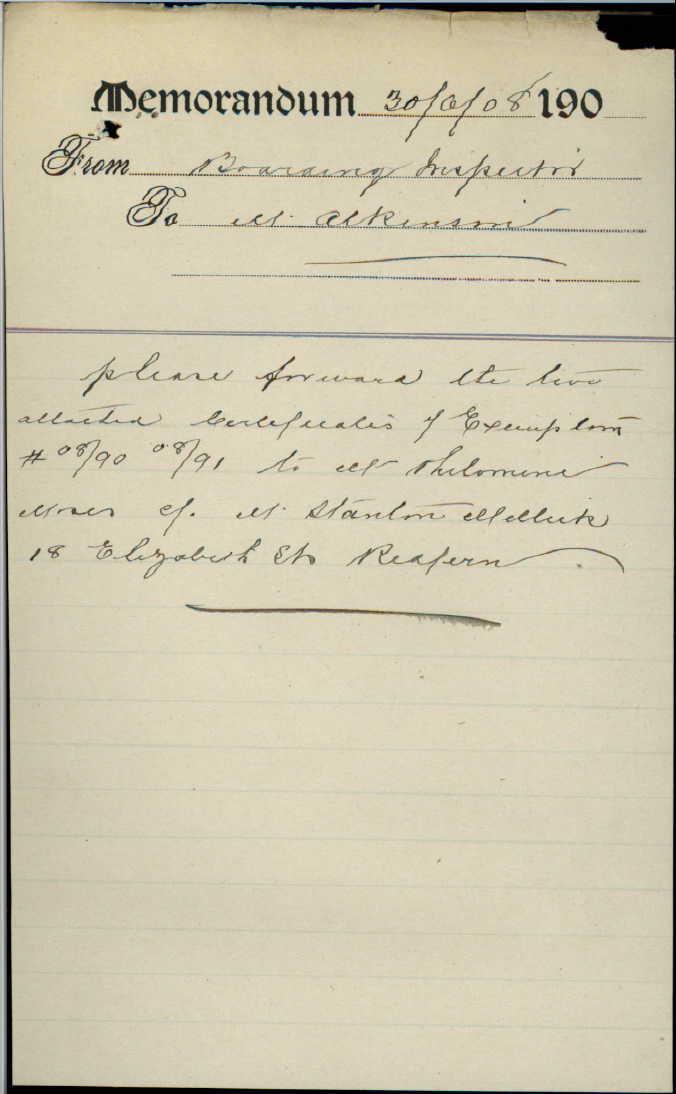 Memorandum 30/6/08 190
From Boarding Inspector
To Mr Atkinson
please forward the two
attached Certificates of Exemption
# 08/90 08/91 to Mr Philomine
Moses c/. Mr Stanton Melick
18 Elizabeth St Redfern